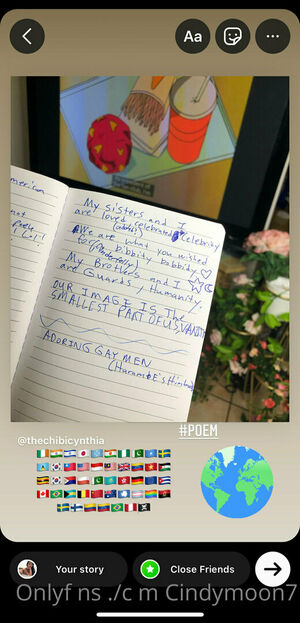 Aa
merican
not
My Sisters and I
are loved celebrated celebrity
We are what you wished
for bibbity babbidy
My Brothers and I
are Guards, Humanity.
OUR IMAGE IS THE
SMALLEST PART OF US, VANITY
ADORING GAY MEN
#POEM
@thechibicynthia
Your story
Close Friends
Onlyf ns ./c m Cindymoon7